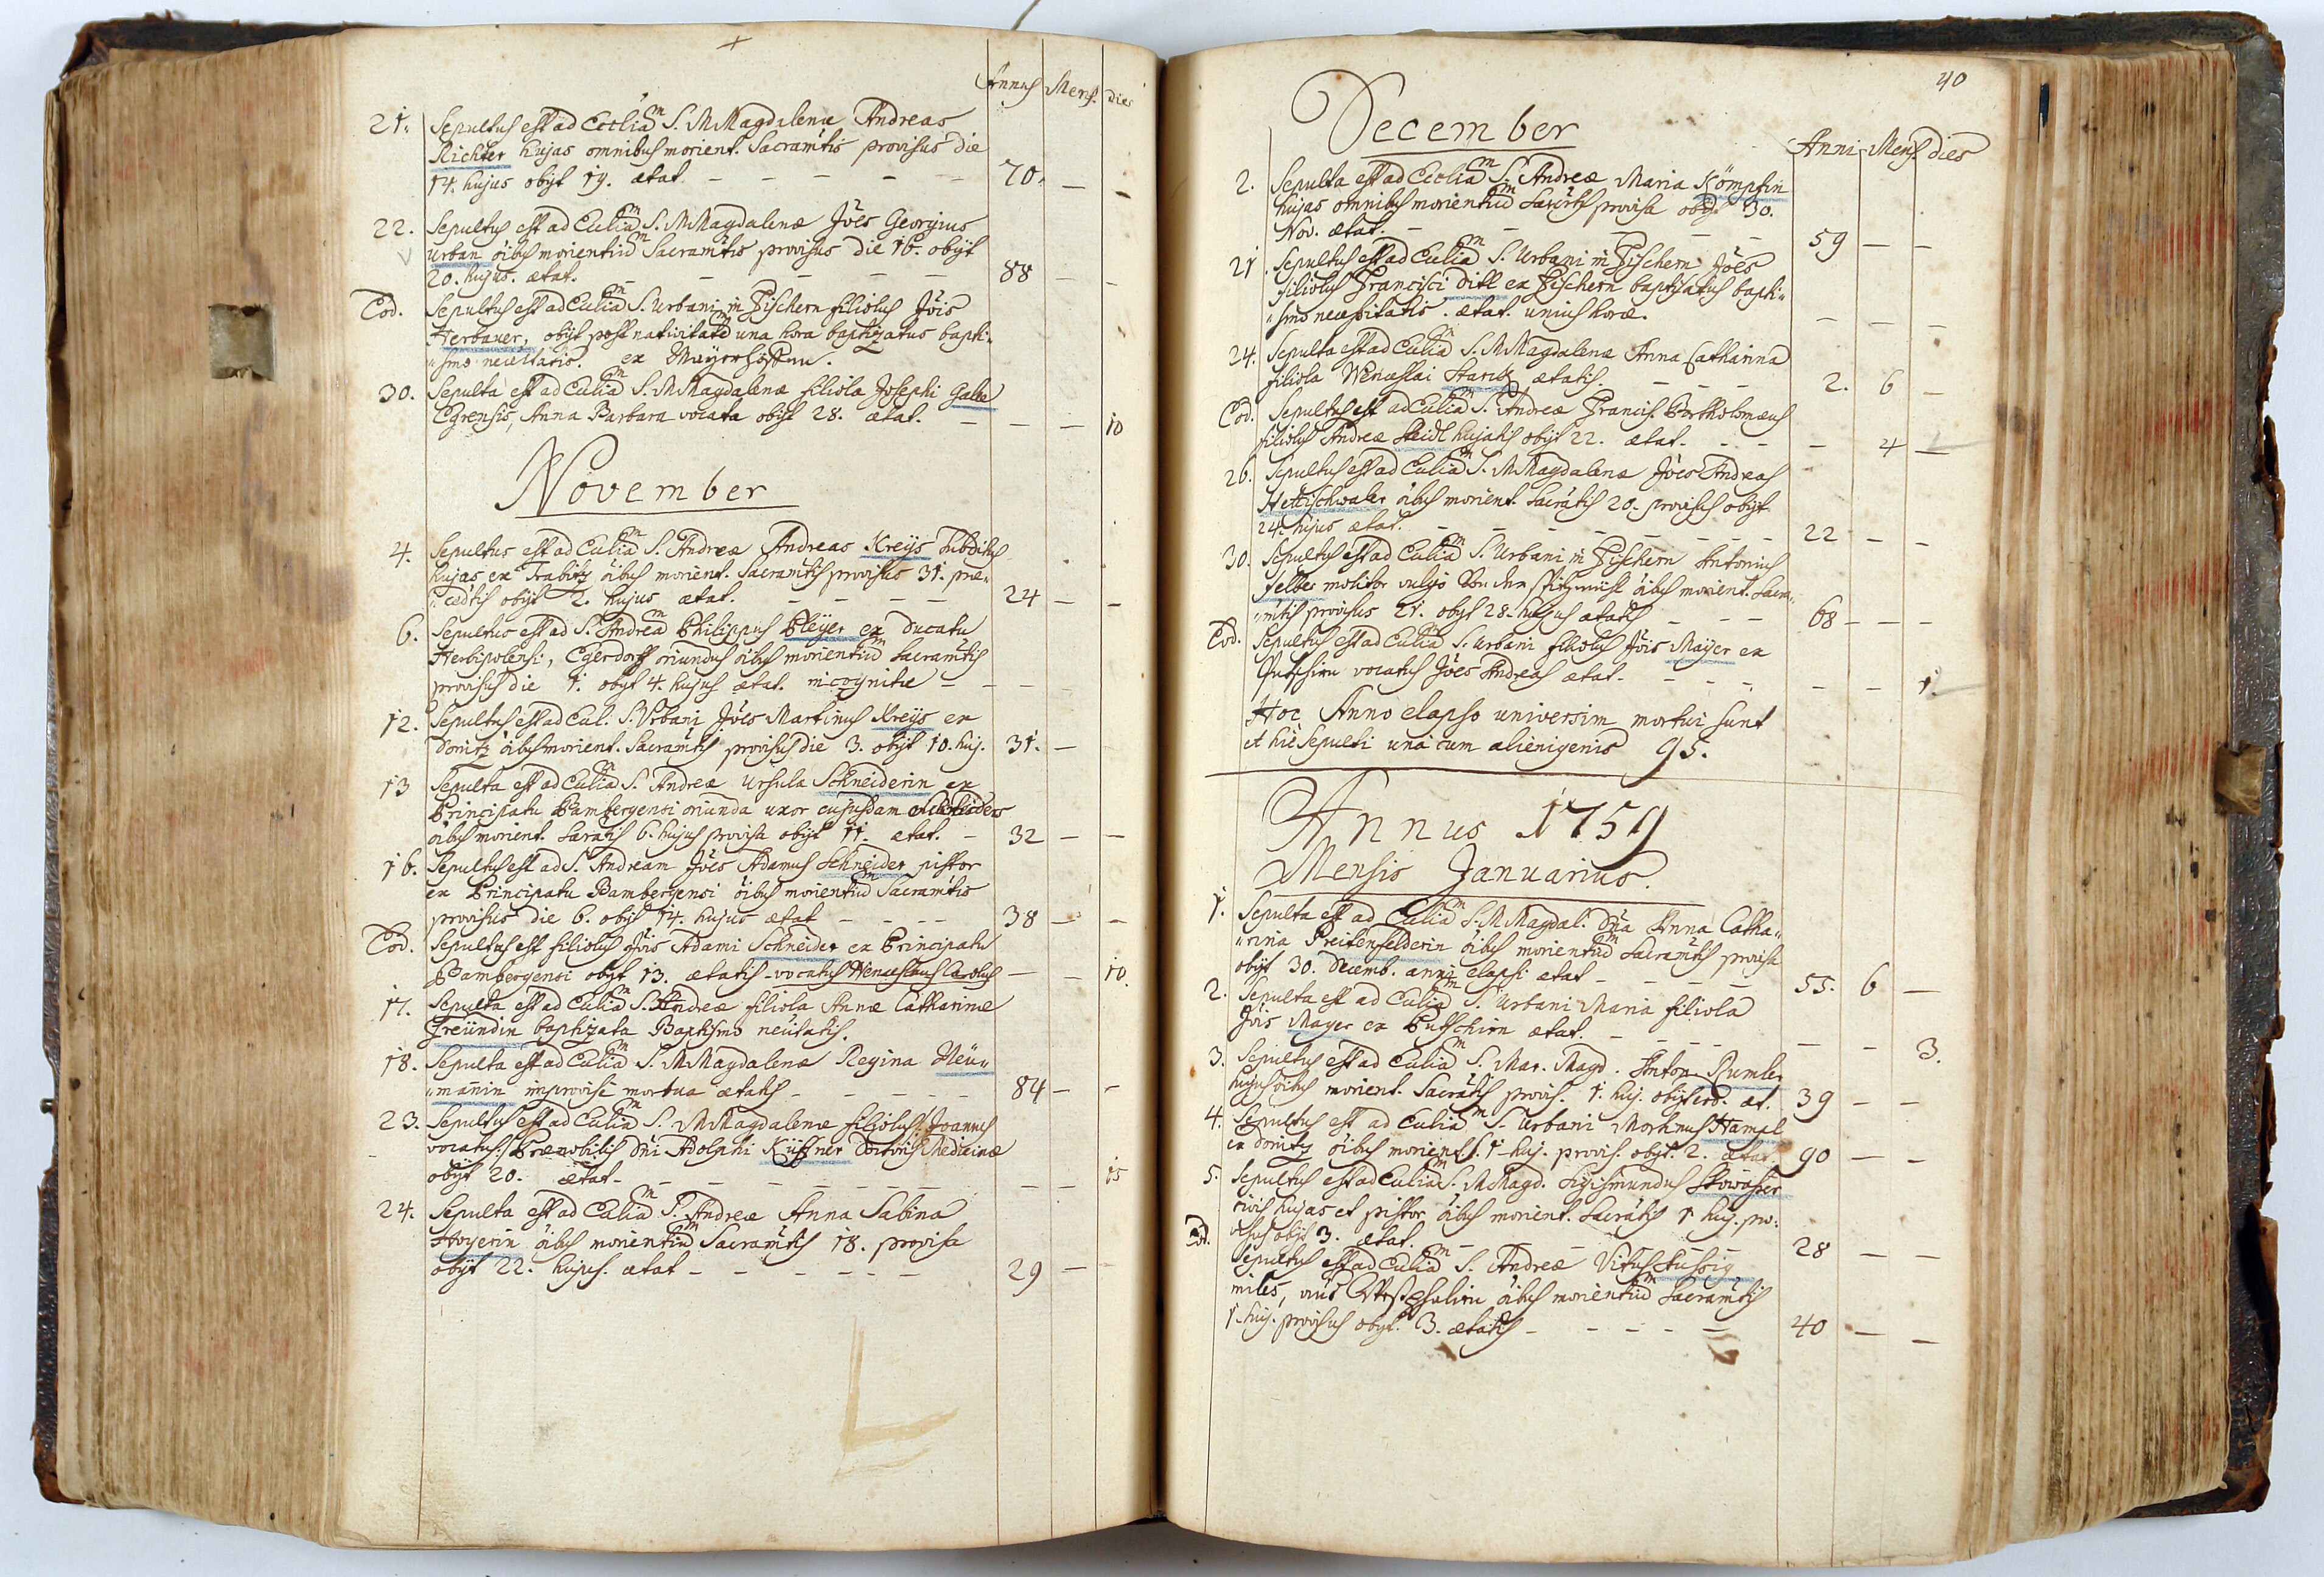 Annus Mens. dies
21. Sepultus est ad Eccliam S. M Magdalenæ Andreas
Richter hujas omnibus morient. Sacramtis provisus die
14. hujus obijt 19. ætat. — — — — — 70. — —
22. Sepultus est ad Eccliam S. M Magdalenæ Jões Georgius
Urban õibus morientium Sacramtis provisus die 16. obijt
20. hujus. ætat. — — — — — 88 — —
Eod. Sepultus est ad Eccliam S. Urbani in Fischern filiolus Jõis
Herbauer, obijt post nativitatem una hora baptizatus bapti-
„smo necessitatis. ex Mayerhöffen.
30. Sepulta est ad Eccliam S. M Magdalenæ filiola Josephi Galla
Egrensis, Anna Barbara vocata obijt 28. ætat. — — — 10
November
4. Sepultus est ad Eccliam S. Andreæ Andreas Kreijs subditus
hujas ex Trabitz õibus morient. Sacramtis provisus 31. præ-
„cedtis obijt 2. hujus ætat. — — — — 24 — —
6. Sepultus est ad S. Andream Philippus Pleyer ex Ducatu
Herbipolensi, Egerdorff oriundus õibus morientium Sacramtis
provisus die 1. obijt 4. hujus ætat. incognitæ — — —
12. Sepultus est ad Eccl. S. Urbani Jões Martinus Kreijs ex
Donitz õibus morient. Sacramtis provisus die 3. obijt 10. huj. 31. —
13 Sepulta est ad Eccliam S. Andreæ Ursula Schneiderin ex
Principatu Bambergensi oriunda uxor cujusdam
õibus morient. Sacratis 6. hujus provisa obijt 11. ætat. — 32 — —
16. Sepultus est ad S. Andream Jões Adamus Schneider pistor
ex Principatu Bambergensi õibus morientium Sacramtis
provisus die 6. obijt 14. hujus ætat — — — — 38 — —
Eod. Sepultus est filiolus Jõis Adami Schneider ex Principatu
Bambergensi obijt 13. ætatis vocatus Wenceslaus Carolus — — 10.
17. Sepulta est ad Eccliam S. Andreæ filiola Annæ Catharinæ
Freündin baptizata Baptismo necitatis.
18. Sepulta est ad Eccliam S. M Magdalenæ Regina Neü-
„mañin improvise mortua ætatis — — — — — 84 — —
23. Sepultus est ad Eccliam S. M Magdalenæ filiolus /: Joannes
vocatus :/ Prænobilis Dñi Adolphi Küffner Doctoris Medicinæ
obijt 20. ætat. — — — — — — — — — 15
24. Sepulta est ad Eccliam S. Andreæ Anna Sabina
Hoyerin õibus morientium Sacramtis 18. provisa
obijt 22. hujus. ætat — — — — — — 29 — —
40
December
Anni Mens. dies
2. Sepulta est ad Eccliam S. Andreæ Maria Kömpfin
hujas omnibus morientium Sacrtis provisa obijt 30.
Nov. ætat. — — — — — 59 — —
21. Sepultus est ad Eccliam S. Urbani in Fischern Jões
filiolus Francisci Ditl ex Fischern baptizatus bapti„
„smo necessitatis. ætat. unius horæ. — — —
24. Sepulta est ad Eccliam S. M Magdalenæ Anna Catharina
filiola Wenceslai Starck ætatis. — — — 2. 6 —
Eod. Sepultus est ad Eccliam S. Andreæ Francis. Bartholomæus
filiolus Andreæ Heidl hujatis obijt 22. ætat. — — — 4 —
26. Sepultus est ad Eccliam S. M Magdalenæ Jões Andreas
õibus morient. Sacratis 20. provisus obijt
24. hujus ætat. — — — — — — 22 — —
30. Sepultus est ad Eccliam S. Urbani in Fischern Antonius
Felber molitor vulgo Von der Spitzmühl õibus morient. Sacra-
„mtis provisus 21. obijt 28. hujus ætatis — — — 68 — —
Eod. Sepultus est ad Eccliam S. Urbani filiolus Jõis Mayer ex
Putschirn vocatus Jões Andreas ætat. — — — — — 1.
Hoc Anno elapso universim mortui sunt
et hic sepulti una cum alienigenis 95.
Annus 1759
Mensis Januarius.
1. Sepulta est ad Eccliam S. M Magdal. Dña Anna Catha„
„rina Preitenfelderin õibus morientium Sacramtis provisa
obijt 30. Decemb. anni elapsi ætat — — — — 55. 6 —
2. Sepulta est ad Eccliam S. Urbani Maria filiola
Jõis Mayer ex Putschirn ætat. — — — — — — 3.
3. Sepultus est ad Eccliam S. Mar. Magd. Anton Rumler
hujus õibus morient. Sacratis provis. 1. huj. obijt eod. æt. 39 — —
4. Sepultus est ad Eccliam S. Urbani Martinus Hampl
ex Donitz õibus morient. S. 1 huj. provis. obijt. 2. ætat. 90 — —
5. Sepultus est ad Eccliam S. M Magd. Sigismundus Skowasser
civis hujas et pistor õibus morient. Sacratis 1 huj. pro:
visus obijt 3. ætat. — — — 28 — —
Eod. Sepultus est ad Eccliam S. Andreæ Vitus Hussig
miles, aus Westphalien õibus morientium Sacramtis
1. huj. provisus obijt. 3. ætatis — — — — — 40 — —